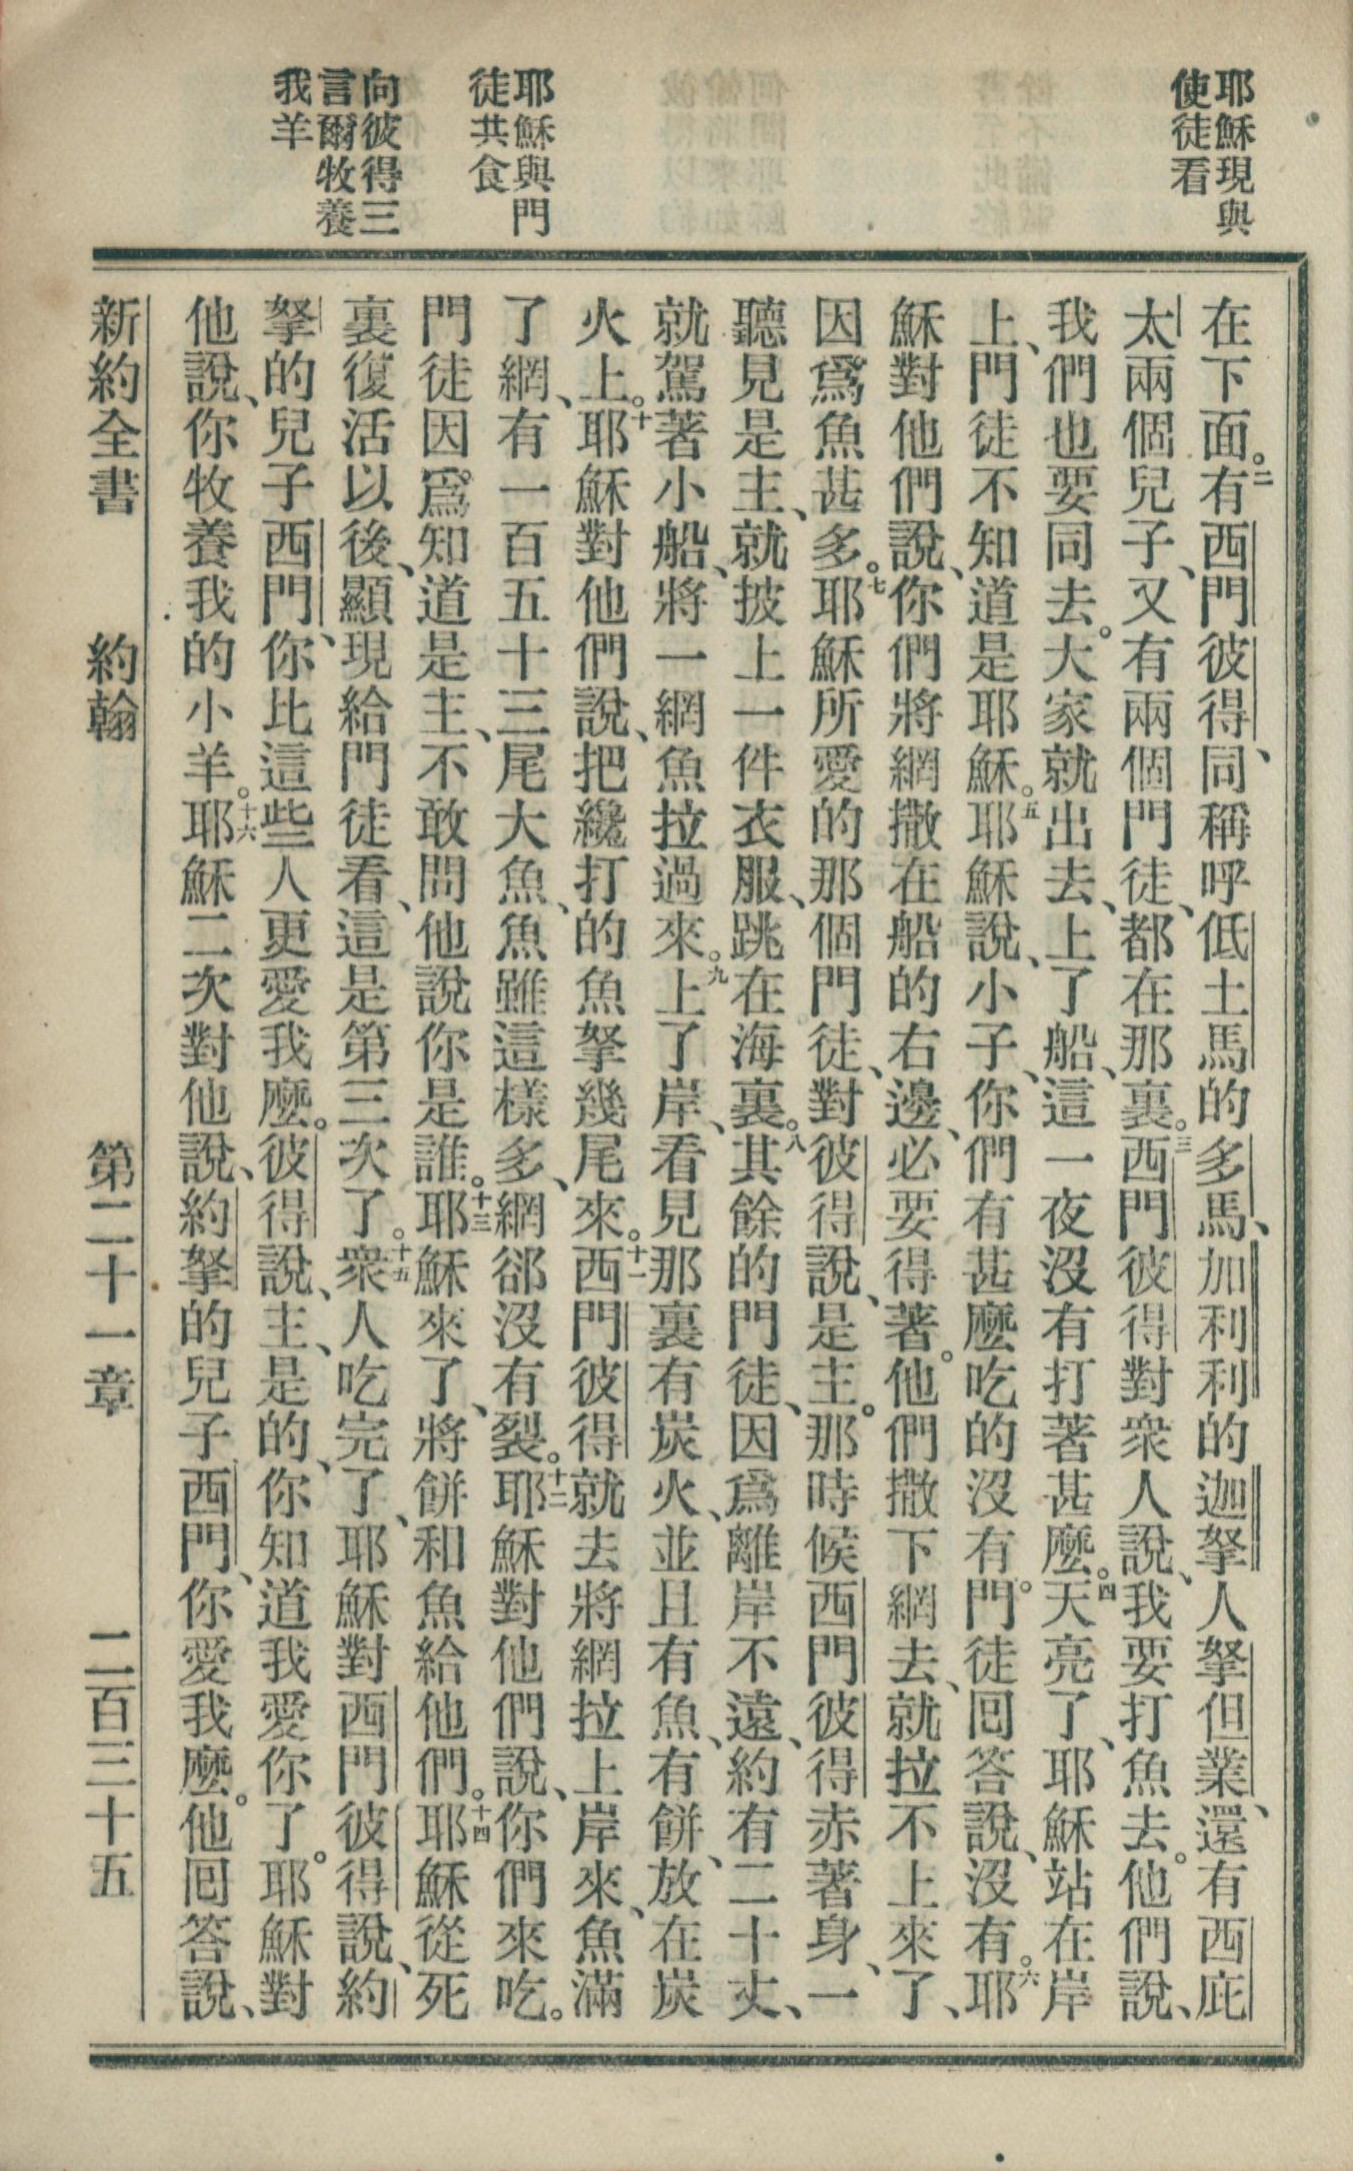 耶穌現與
使徒看
耶穌與門
徒共食
向彼得三
言爾牧養
我羊
在下面。二有西門彼得、同稱呼低土馬的多馬、加利利的迦拏人拏但業、還有西庇
太兩個兒子、又有兩個門徒、都在那裏。三西門彼得對衆人說、我要打魚去。他們說、
我們也要同去。大家就出去、上了船、這一夜沒有打著甚麽。四天亮了、耶穌站在岸
上、門徒不知道是耶穌。五耶穌說、小子、你們有甚麽吃的沒有。門徒回答說、沒有。六耶
穌對他們說、你們將網撒在船的右邊、必要得著。他們撒下網去、就拉不上來了、
因爲魚甚多。七耶穌所愛的那個門徒、對彼得說、是主。那時候西門彼得赤著身、一
聽見是主、就披上一件衣服、跳在海裏。八其餘的門徒、因爲離岸不遠、約有二十丈、
就駕著小船、將一網魚拉過來。九上了岸、看見那裏有炭火、並且有魚、有餅、放在炭
火上。十耶穌對他們說、把纔打的魚拏幾尾來。十一西門彼得就去將網拉上岸來、魚滿
了網、有一百五十三尾大魚、魚雖這樣多、網郤沒有裂。十二耶穌對他們說、你們來吃。
門徒因爲知道是主、不敢問他說你是誰。十三耶穌來了、將餅和魚給他們。十四耶穌從死
裏復活以後、顯現給門徒看、這是第三次了。十五衆人吃完了、耶穌對西門彼得說、約
拏的兒子西門、你比這些人更愛我麽。彼得說、主、是的、你知道我愛你了。耶穌對
他說、你牧養我的小羊。十六耶穌二次對他說、約拏的兒子西門、你愛我麽。他回答說、
新約全書　約翰　第二十一章　二百三十五